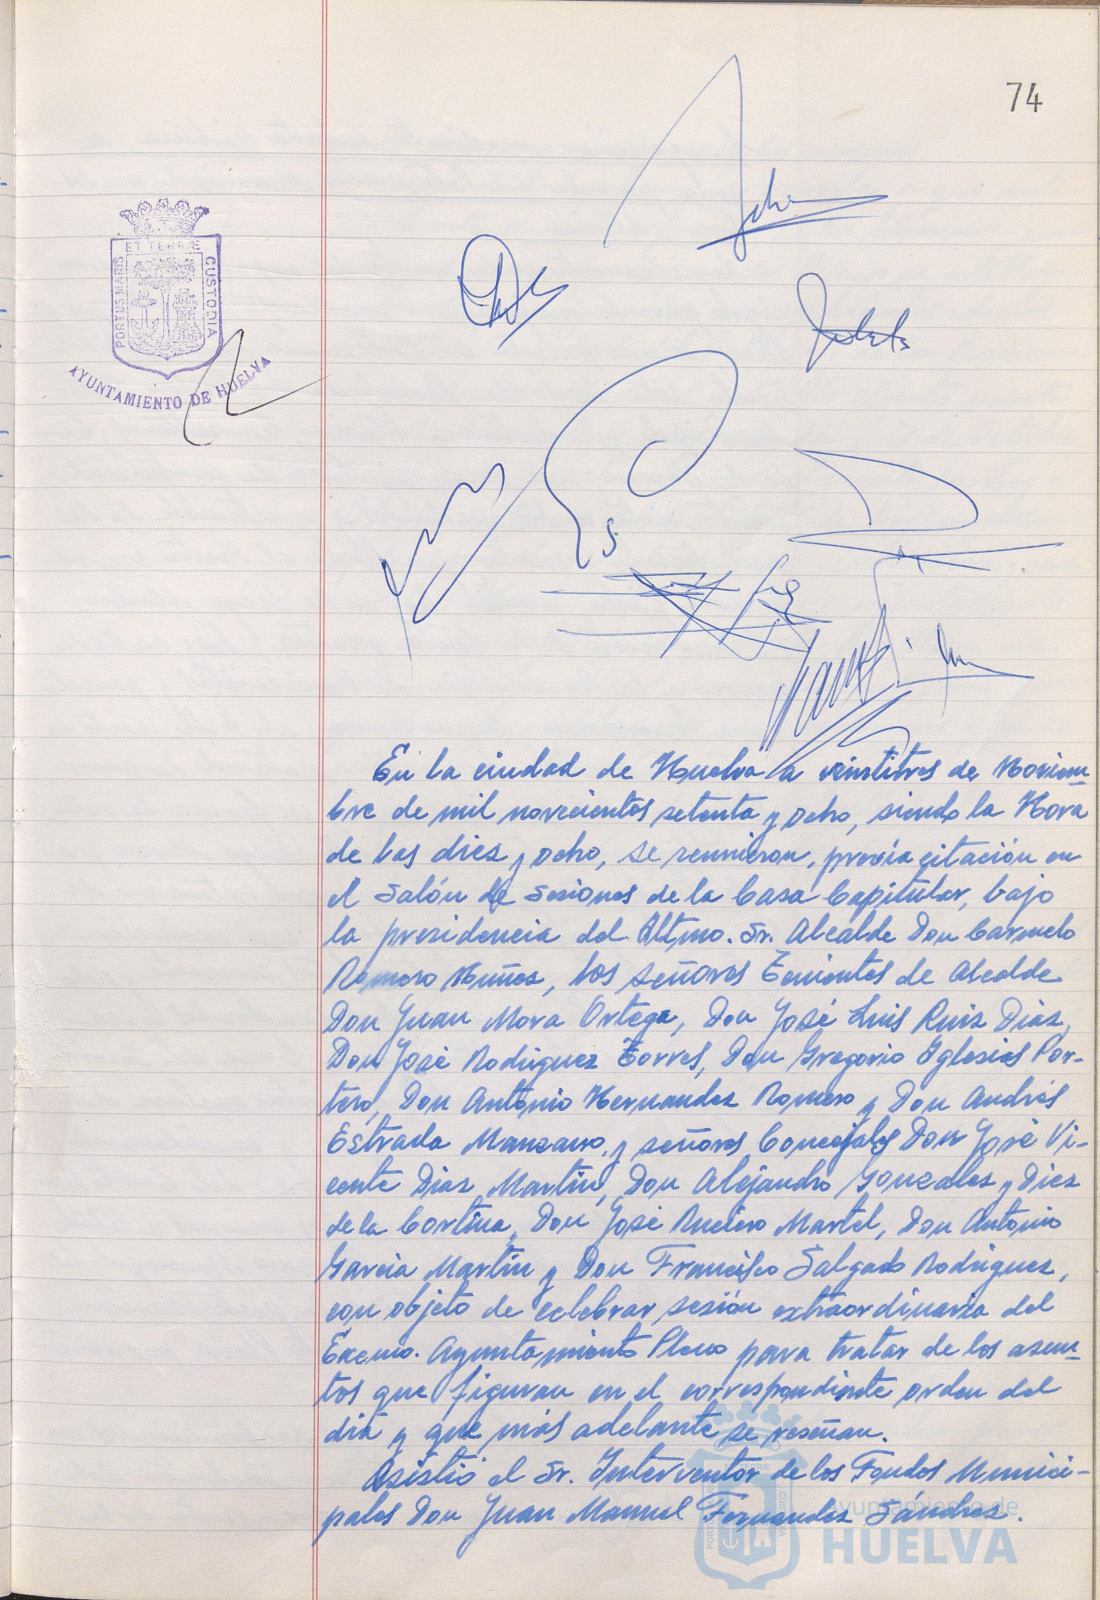 74
PORTUS MARIS ET TERRÆ CUSTODIA
AYUNTAMIENTO DE HUELVA
En la ciudad de Huelva a veintitres de Noviem-
bre de mil novecientos setenta y ocho, siendo la Hora
de las diez y ocho, se reunieron, previa citación en
el Salón de Sesiones de la Casa Capitular, bajo
la presidencia del Iltmo. Sr. Alcalde Don Carmelo
Romero Núñez, los señores Tenientes de Alcalde
Don Juan Mora Ortega, Don José Luis Ruiz Díaz,
Don José Rodríguez Torres, Don Gregorio Iglesias Por-
tero, Don Antonio Hernandez Romero y Don Andrés
Estrada Manzano, y señores Concejales Don José Vi-
cente Díaz Martín, Don Alejandro Gonzalez y Diez
de la Cortina, Don José Martel, Don Antonio
García Martín y Don Francisco Salgado Rodríguez,
con objeto de celebrar sesión extraordinaria del
Excmo. Ayuntamiento Pleno para tratar de los asun-
tos que figuran en el correspondiente orden del
día y que más adelante se reseñan.
Asistió el Sr. Interventor de los Fondos Munici-
pales Don Juan Manuel Fernandez Sánchez.
Ayuntamiento de
HUELVA